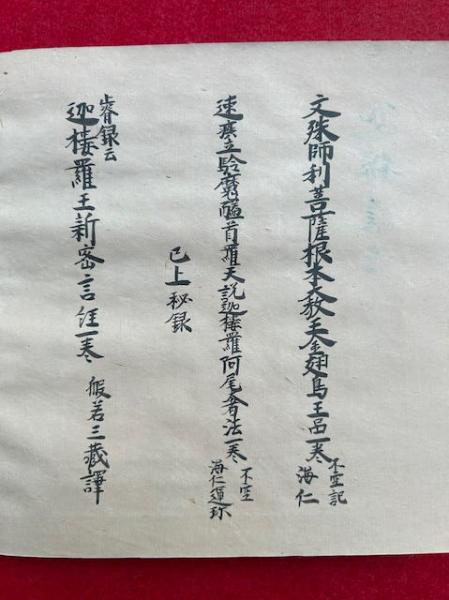 文殊師利菩薩根本大教王金翅鳥王品一巻 不空記
海仁
速疾立験魔醯首羅天説迦楼羅阿尾奢法一巻 不空
海仁運珎
已上秘録
睿録云
迦楼羅王新密言経一巻 般若三蔵譯